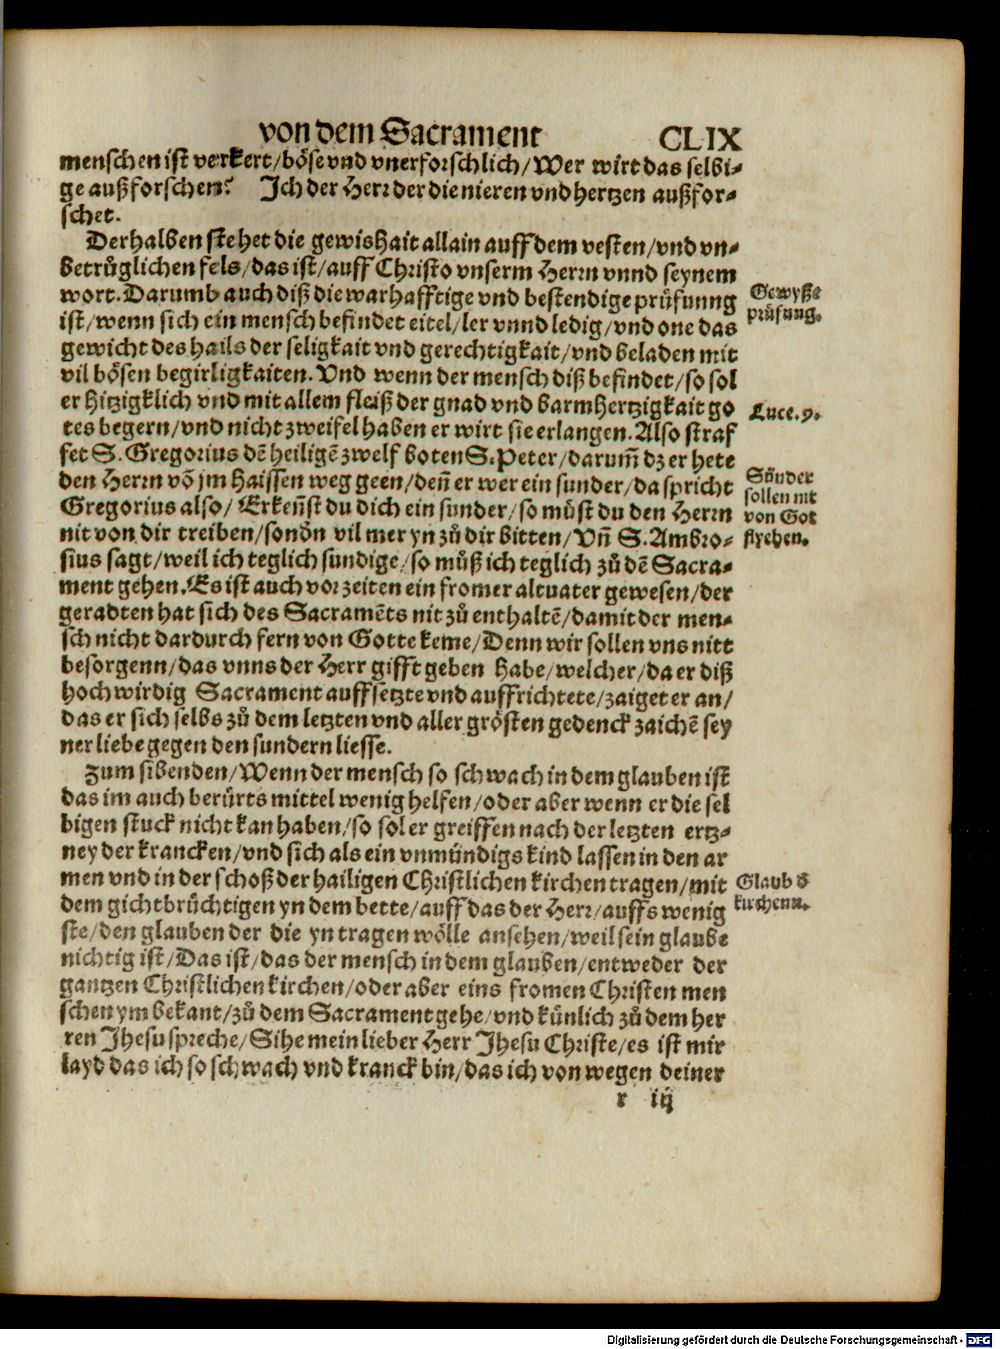 von dem Sacrament CLIX
menschen ist verkert/böse vnd vnerforschlich/Wer wirt das selbi-
ge außforschen? Ich der Herr der die nieren vnd hertzen außfor-
schet.
Derhalben stehet die gewishait allain auff dem vesten/vnd vn-
betrůglichen fels/das ist/auff Christo vnserm Herrn vnnd seynem
wort. Darumb auch diß die warhafftige vnd bestendige prüfunng
ist/wenn sich ein mensch befindet eitel/ler vnnd ledig/vnd one das
gewicht des hails der seligkait vnd gerechtigkait/vnd beladen mit
vil bösen begirligkaiten. Vnd wenn der mensch diß befindet/so sol
er hitzigklich vnd mit allem fleiß der gnad vnd barmhertzigkait go
tes begern/vnd nicht zweifel haben er wirt sie erlangen. Also straf
fet S. Gregorius dē heiligē zwelf boten S. Peter/darum̄ dz er hete
den Herrn vō jm haissen weg geen/deñ er wer ein sunder/da spricht
Gregorius also/ Erkeñst du dich ein sunder/so můst du den Herrn
nit von dir treiben/sondn vil mer yn zů dir bitten/Vñ S. Ambro-
sius sagt/weil ich teglich sundige/so můß ich teglich zů dē Sacra-
ment gehen. Es ist auch vor zeiten ein fromer altuater gewesen/der
geradten hat sich des Sacramēts nit zů enthaltē/damit der men-
sch nicht dardurch fern von Gotte keme/Denn wir sollen vns nitt
besorgenn/das vnns der Herr gifft geben habe/welcher/da er diß
hochwirdig Sacrament auffsetzte vnd auffrichtete/zaiget er an/
das er sich selbs zů dem letzten vnd aller grösten gedenck zaichē sey
ner liebe gegen den sundern liesse.
Zum sibenden/Wenn der mensch so schwach in dem glauben ist
das im auch berürts mittel wenig helfen/oder aber wenn er die sel
bigen stuck nicht kan haben/so sol er greiffen nach der letzten ertz-
ney der krancken/vnd sich als ein vnmündigs kind lassen in den ar
men vnd in der schoß der hailigen Christlichen kirchen tragen/mit
dem gichtbrüchtigen yn dem bette/auff das der Herr/auffs wenig
ste/den glauben der die yn tragen wölle ansehen/weil sein glaube
nichtig ist/Das ist/das der mensch in dem glauben/entweder der
gantzen Christlichen kirchen/oder aber eins fromen Christen men
schen ym bekant/zů dem Sacrament gehe/vnd künlich zů dem her
ren Jhesu spreche/Sihe mein lieber Herr Jhesu Christe/es ist mir
layd das ich so schwach vnd kranck bin/das ich von wegen deiner
r iij
Gewysse
prüfung.
Luce.9.
Sünder
sollen nit
von Got
flyehen.
Glaub d
kirchenn.
Digitalisierung gefördert durch die Deutsche Forschungsgemeinschaft - DFG